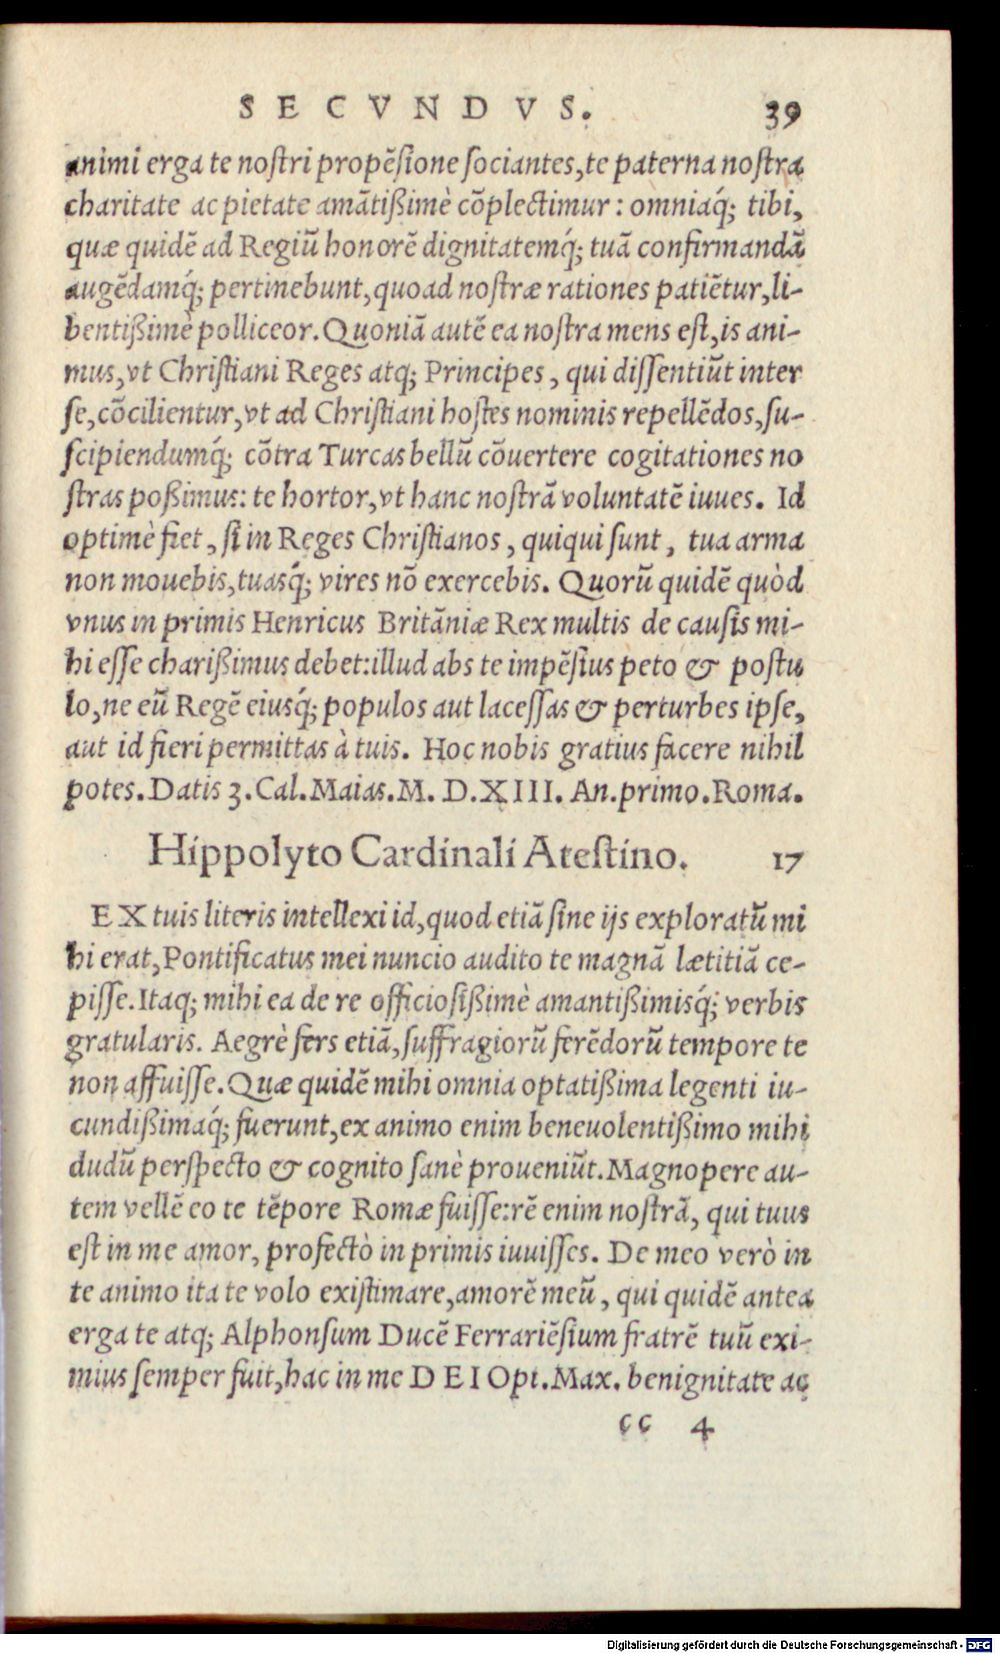 SECVNDVS. 39
animi erga te nostri propẽsione sociantes, te paterna nostra
charitate ac pietate amãtißimè cõplectimur: omniaq́; tibi,
quæ quidẽ ad Regiũ honorẽ dignitatemq́; tuã confirmandã
augẽdamq́; pertinebunt, quoad nostræ rationes patiẽtur, li-
bentißimè polliceor. Quoniã autẽ ea nostra mens est, is ani-
mus, vt Christiani Reges atq; Principes, qui dissentiũt inter
se, cõcilientur, vt ad Christiani hostes nominis repellẽdos, su-
scipiendumq́; cõtra Turcas bellũ cõuertere cogitationes no
stras poßimus: te hortor, vt hanc nostrã voluntatẽ iuues. Id
optimè fiet, si in Reges Christianos, quiqui sunt, tua arma
non mouebis, tuasq́; vires nõ exercebis. Quorũ quidẽ quòd
vnus in primis Henricus Britãniæ Rex multis de causis mi-
hi esse charißimus debet: illud abs te impẽsius peto & postu
lo, ne eũ Regẽ eiusq́; populos aut lacessas & perturbes ipse,
aut id fieri permittas à tuis. Hoc nobis gratius facere nihil
potes. Datis 3. Cal. Maias. M. D. XIII. An. primo. Roma.
Hippolyto Cardinali Atestino. 17
EX tuis literis intellexi id, quod etiã sine ijs exploratũ mi
hi erat, Pontificatus mei nuncio audito te magnã lætitiã ce-
pisse. Itaq; mihi ea de re officiosißimè amantißimisq́; verbis
gratularis. Aegrè fers etiã, suffragiorũ ferẽdorũ tempore te
non affuisse. Quæ quidẽ mihi omnia optatißima legenti iu-
cundißimaq́; fuerunt, ex animo enim beneuolentißimo mihi
dudũ perspecto & cognito sanè proueniũt. Magnopere au-
tem vellẽ eo te tẽpore Romæ fuisse: rẽ enim nostrã, qui tuus
est in me amor, profectò in primis iuuisses. De meo verò in
te animo ita te volo existimare, amorẽ meũ, qui quidẽ antea
erga te atq; Alphonsum Ducẽ Ferrariẽsium fratrẽ tuũ exi-
mius semper fuit, hac in me DEI Opt. Max. benignitate ac
cc 4
Digitalisierung gefördert durch die Deutsche Forschungsgemeinschaft - DFG